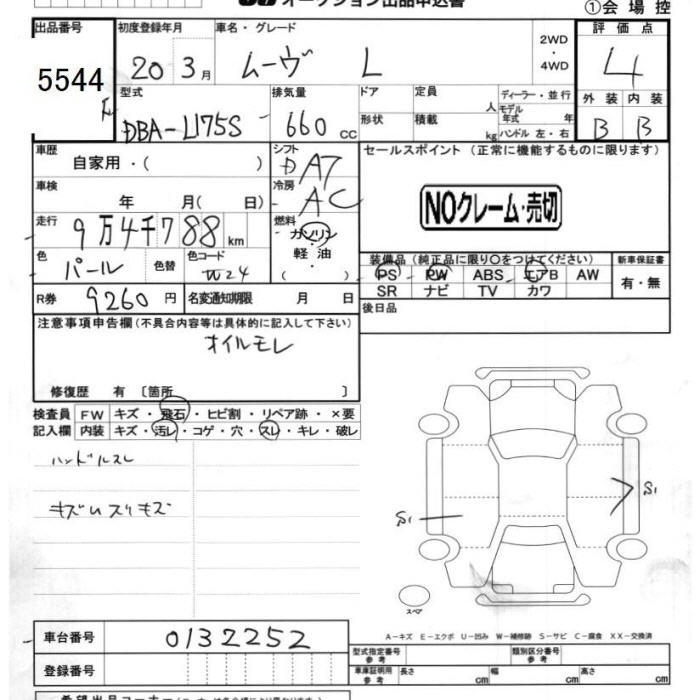 オークション出品申込書
①会場控
出品番号
5544
初度登録年月
20 3月
車名・グレード
ムーヴ L
2WD
・
4WD
評価点
4
型式
DBA-L175S
排気量
660 cc
ドア
形状
定員 人
積載 kg
ディーラー・並行
モデル年式 年
ハンドル 左・右
外装 内装
B B
車歴
自家用・( )
シフト
AT
セールスポイント(正常に機能するものに限ります)
NOクレーム・売切
車検
年 月( 日)
冷房
AC
走行
9万4千788km
燃料
ガソリン
・
軽油
・
( )
色
パール
色替
色コード
W24
装備品(純正品に限り○をつけてください)
PS PW ABS エアB AW
SR ナビ TV カワ
新車保証書
有・無
R券 9260円
名変通知期限 月 日
後日品
注意事項申告欄(不具合内容等は具体的に記入して下さい)
オイルモレ
修復歴 有〔箇所 〕
検査員記入欄
FW キズ・飛石・ヒビ割・リペア跡・×要
内装 キズ・汚レ・コゲ・穴・スレ・キレ・破レ
ハンドルスレ
S1
S1
スペア
A-キズ E-エクボ U-凹み W-補修跡 S-サビ C-腐食 XX-交換済
車台番号 0132252
登録番号
型式指定番号
参考
類別区分番号
参考
車庫証明用
参考
長さ cm
幅 cm
高さ cm